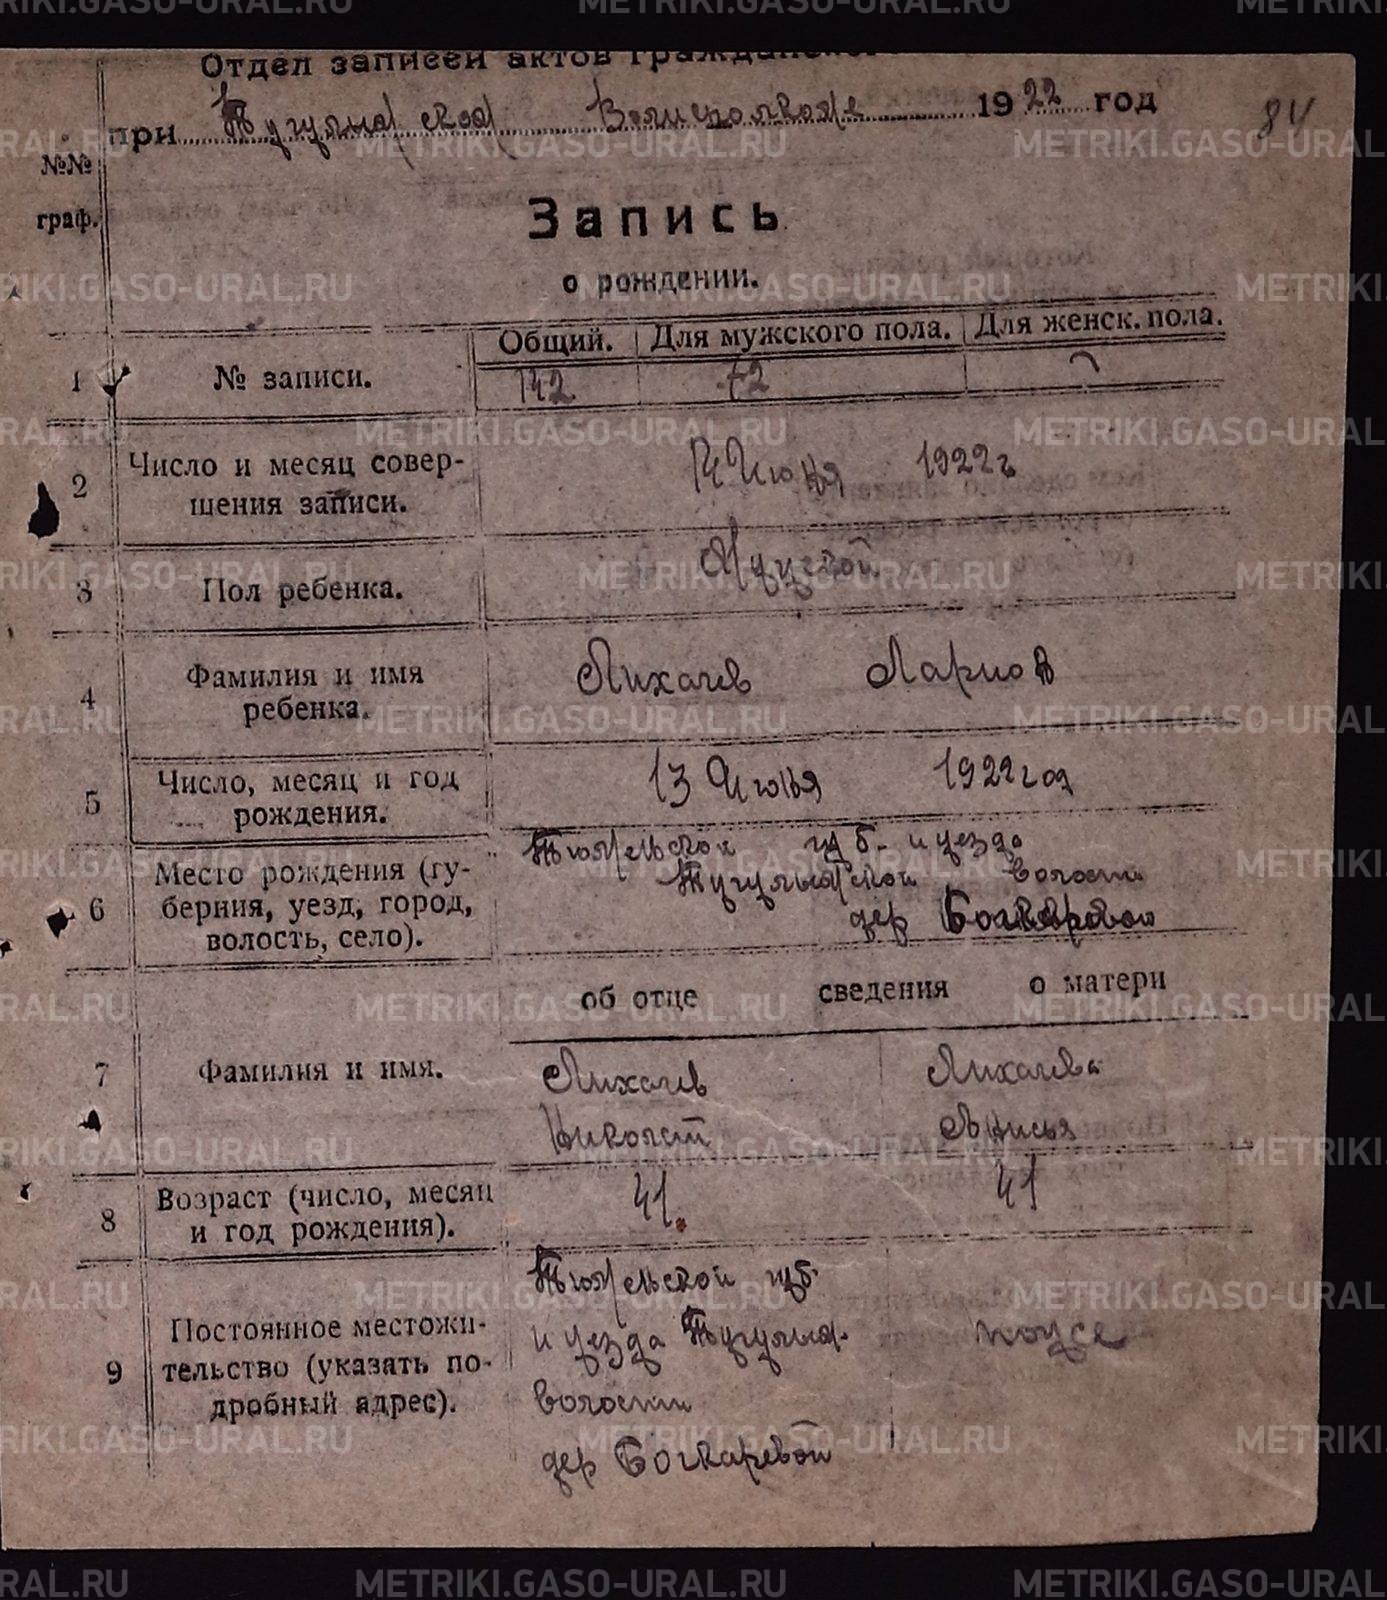 METRIKI.GASO-URAL.RU
Отдел записей актов гражданского
при Тугулымской Волисполкоме 1922 год
84
№№
граф.
Запись
о рождении.
Общий. Для мужского пола. Для женск. пола.
1 № записи. 142 72
2 Число и месяц совер-
шения записи.
14 Июня 1922 г
3 Пол ребенка. Мужской
4 Фамилия и имя
ребенка.
Лихачев Ларион
5 Число, месяц и год
рождения.
13 Июня 1922 год
6 Место рождения (гу-
берния, уезд, город,
волость, село).
Тюменской губ. и уезда
Тугулымской волости
дер Бочкаревой
об отце сведения о матери
7 Фамилия и имя.
Лихачев Лихачева
Анисья
8 Возраст (число, месяц
и год рождения).
41. 41
9 Постоянное местожи-
тельство (указать по-
дробный адрес).
Тюменской губ.
и уезда Тугулым.
волости
дер Бочкаревой